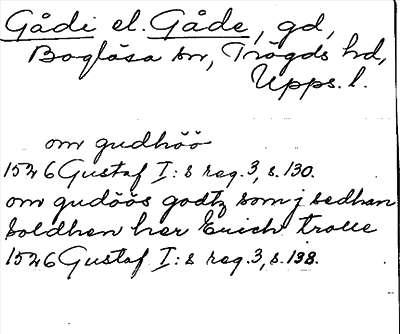 Gådi el. Gåde, gd,
Boglösa sn, Trögds hd,
Upps. l.
om gudhöö
1526 Gustaf I:s reg. 3, s. 130.
om gudöös godtz som j sedhan
soldhen her Erich trolle
1526 Gustaf I:s reg. 3, s. 138.